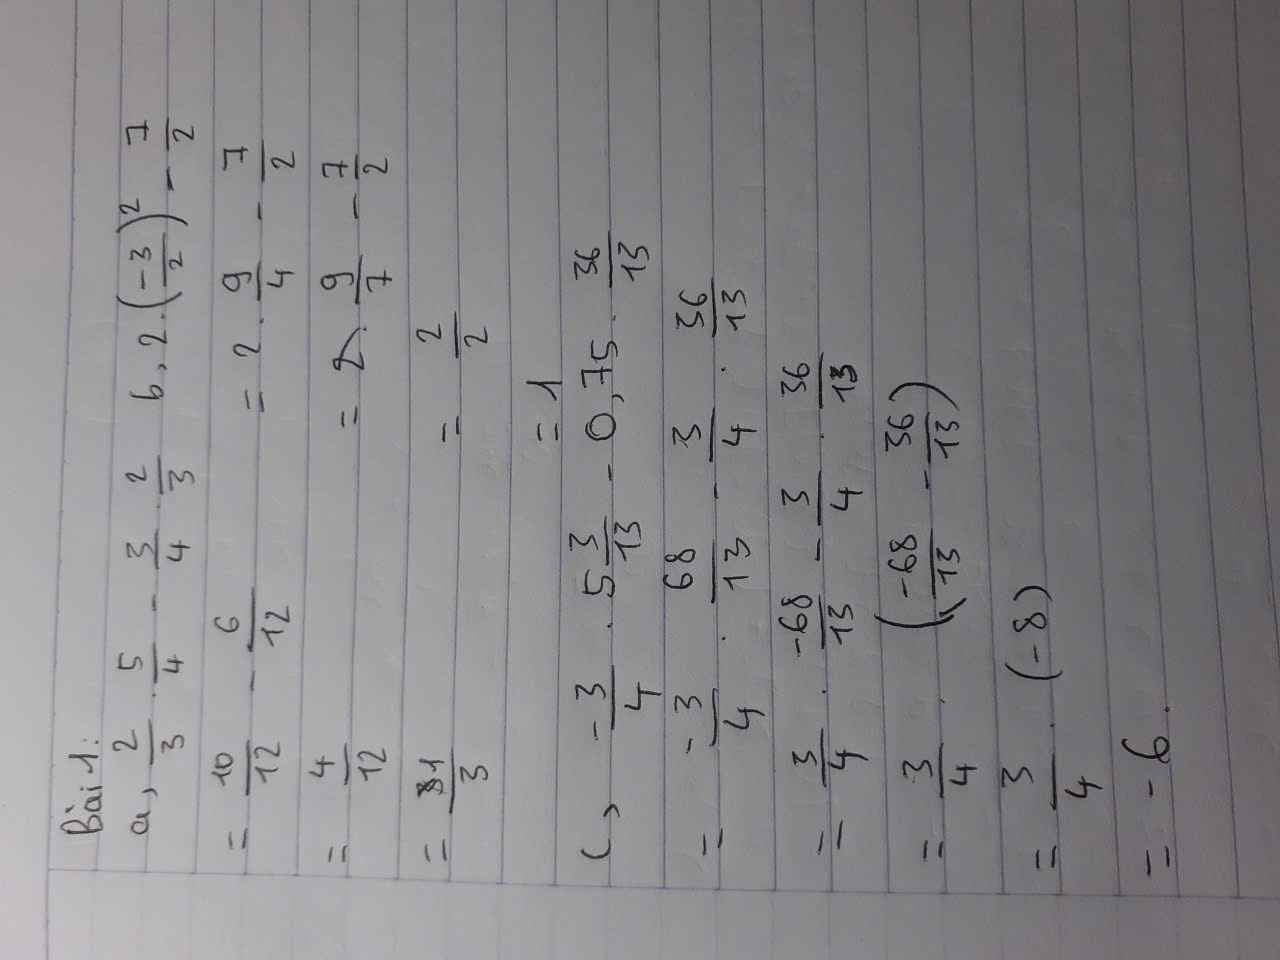 Bài 1:
a, 2/3 . 5/4 - 3/4 . 2/3 b, 2 . (-3/2)² - 7/2
= 10/12 - 6/12 = 2 . 9/4 - 7/2
= 4/12 = 2 . 9/7 - 7/2
= 1/3 = 2/2
= 1
c, -3/4 . 5 3/13 - 0,75 . 36/13
= -3/4 . 68/13 - 3/4 . 36/13
= 3/4 . -68/13 - 3/4 . 36/13
= 3/4 . (-68/13 - 36/13)
= 3/4 . (-8)
= -6.